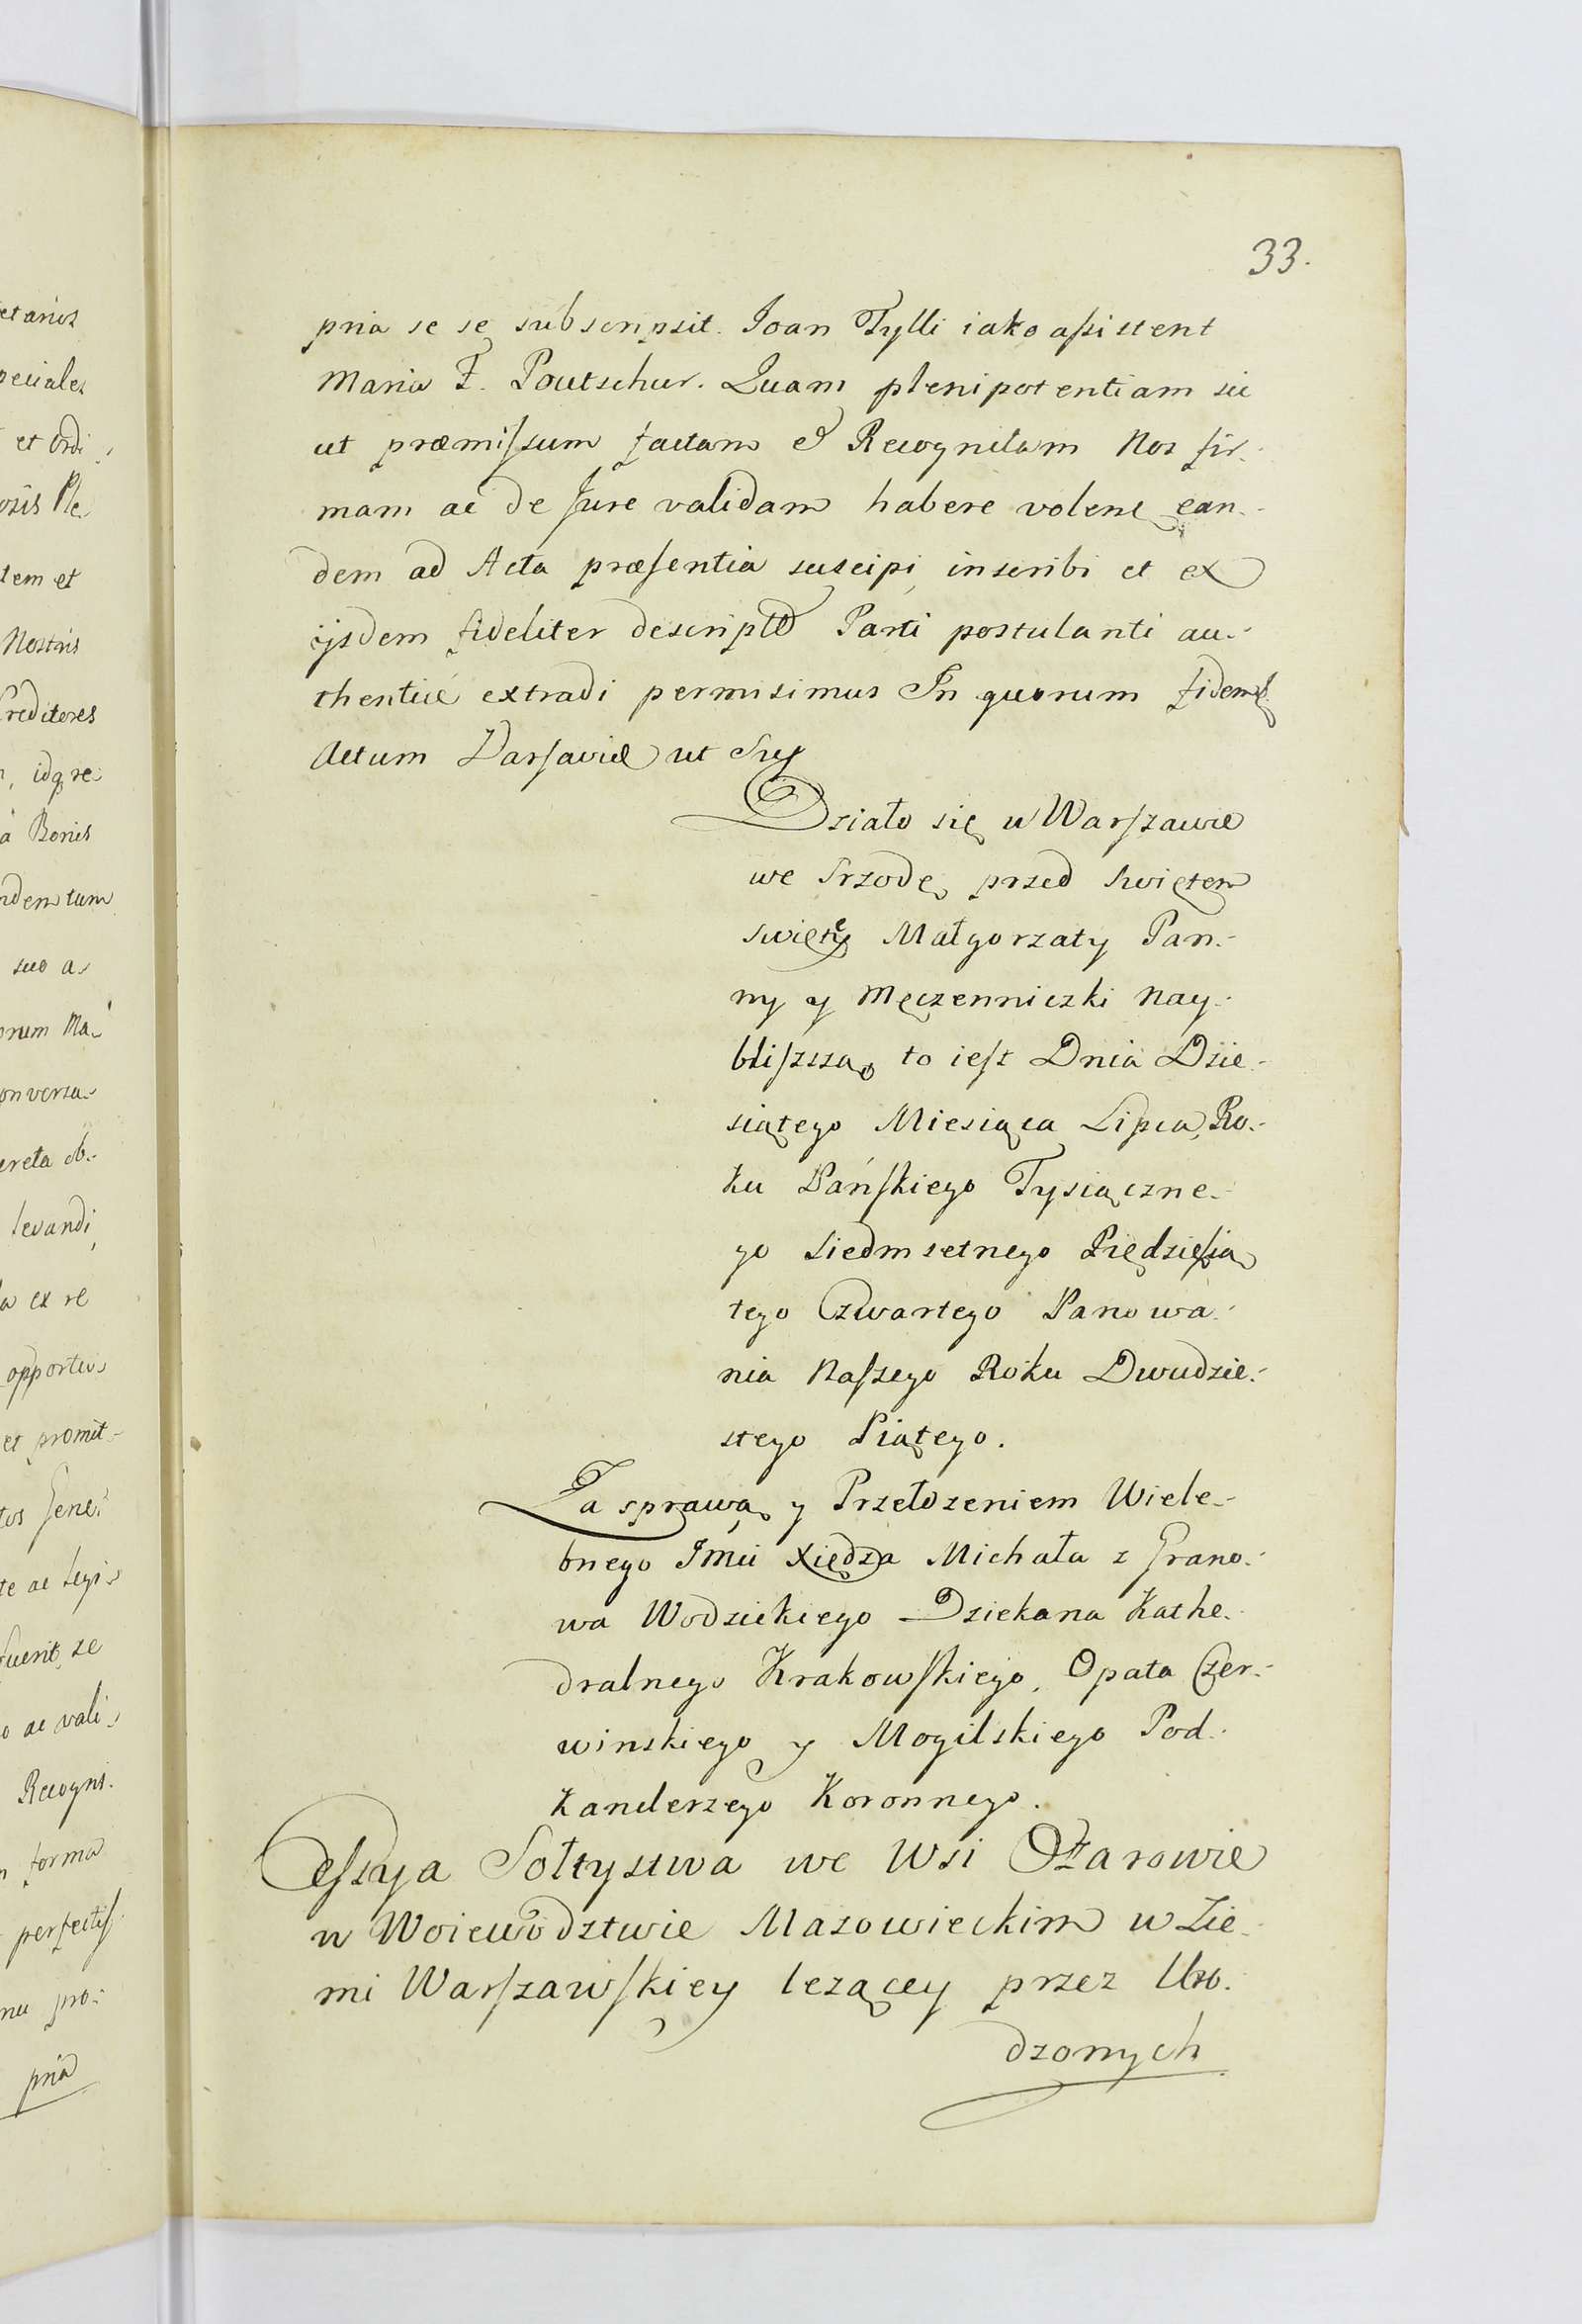 33.
pria se se subscripsit. Joan Tylli iako aſsistent
Maria F. Poutschur. Quam plenipotentiam sic
ut præmiſsum factam et Recognitam Nos fir-
mam ac de Jure validam habere volens ean-
dem ad Acta præſentia suscipi inscribi et ex
ijsdem fideliter descripte Parti postulanti au-
thentice extradi permisimus In quorum fidem
Actum Varſaviæ ut Sup
Działo się w Warſzawie
we Srzodę przed Swiętem
Swiętey Małgorzaty Pan-
ny y Męczenniczki Nay-
bliſzszą to ieſt Dnia Dzie-
siątego Miesiąca Lipca, Ro-
ku Pańſkiego Tysiączne-
go Siedmsetnego Piędzieſią
tego Czwartego Panowa-
nia Naſzego Roku Dwudzie-
stego Piątego.
Za sprawą y Przełozeniem Wiele-
bnego Jmci Xiędza Michała z Grano-
wa Wodzickiego Dziekana Kathe-
dralnego Krakowſkiego, Opata Czer-
winskiego y Mogilskiego Pod-
kanclerzego Koronnego.
Ceſsya Sołtystwa we Wsi Ożarowie
w Woiewodztwie Mazowieckim w Zie-
mi Warſzawſkiey lezącey przez Uro-
dzonych
etarios
peciales
et Ordi
osis Ple
tem et
Nostris
Creditores
idq re
a Bonis
ndentum
suo a
orum Ma
onversa
creta ob
levandi
ex re
opportu
et promit
tos Gene
te ac Legi
fuerit, ze
o ac vali
Recogni
forma
perfectiſ
nu pro
pria